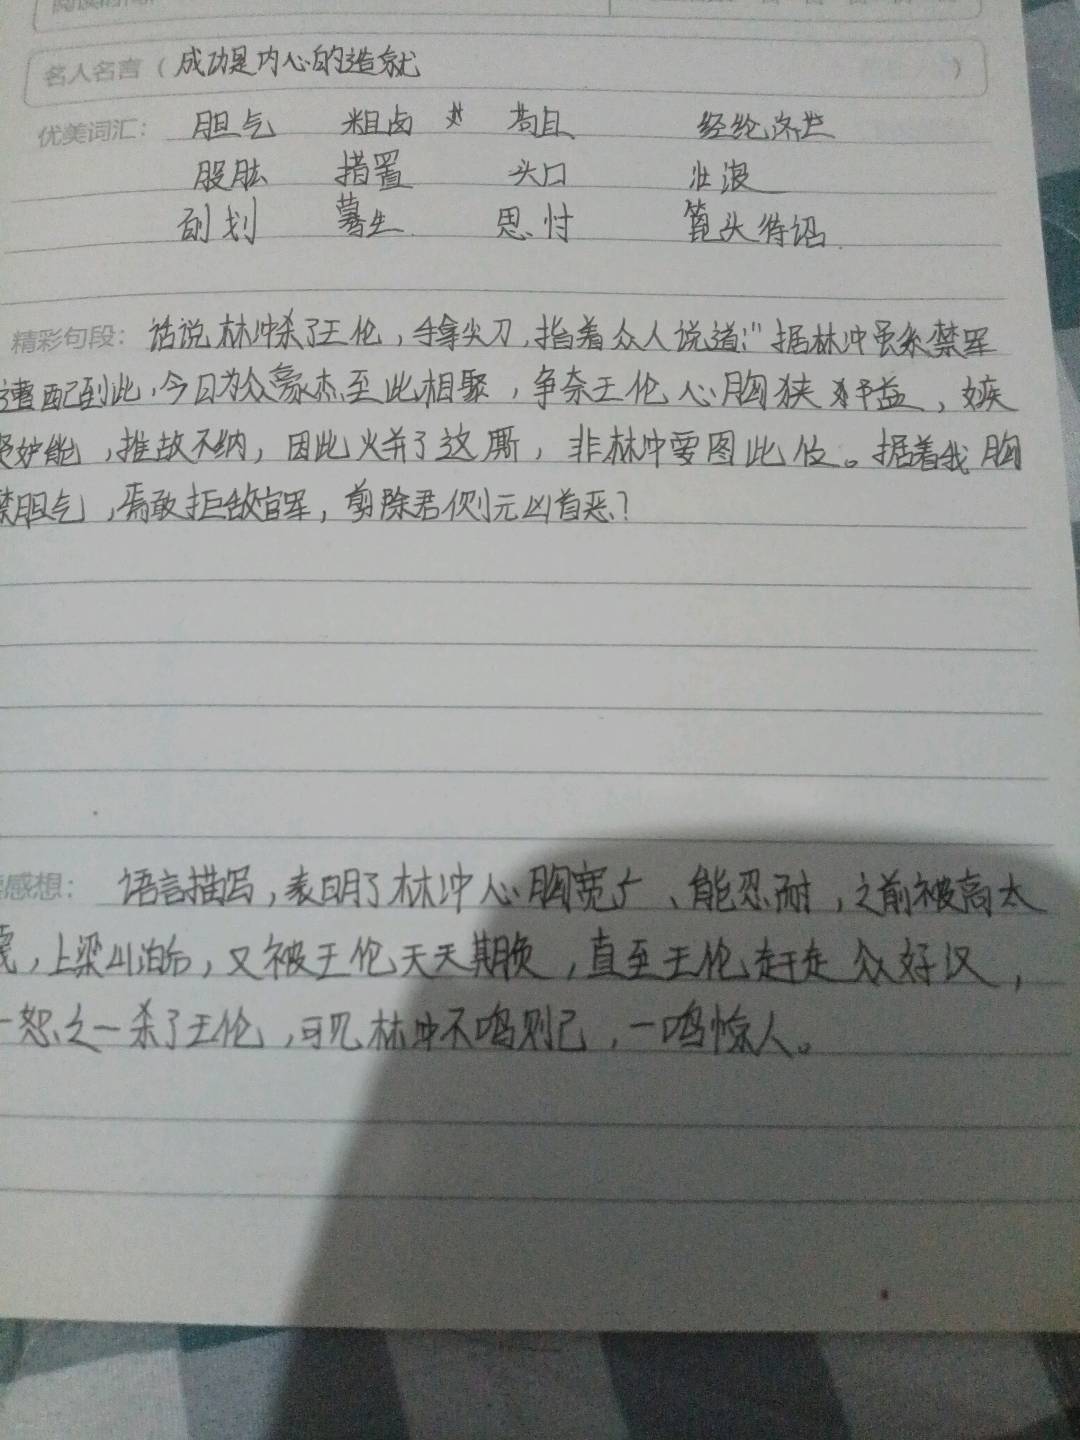 名人名言（成功是内心的造就）
优美词汇： 胆气 粗卤 苟且 经纶济世
股肱 措置 头口 壮浪
刮划 蓦生 思忖 笔头待诏
精彩句段：话说林冲杀了王伦，手拿尖刀，指着众人说道："据林冲虽系禁军
遭配到此，今日为众豪杰至此相聚，争奈王伦心胸狭隘，嫉
妒能，推故不纳，因此火并了这厮，非林冲要图此位。据着我胸
襟胆气，焉敢拒敌官军，剪除君侧元凶首恶？
感想：语言描写，表明了林冲心胸宽广、能忍耐，之前被高太
，上梁山泊后，又被王伦天天期负，直至王伦赶走众好汉，
一恕之一杀了王伦，可见林冲不鸣则已，一鸣惊人。